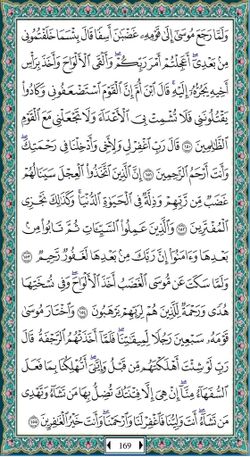 وَلَمَّا رَجَعَ مُوسَىٰٓ إِلَىٰ قَوْمِهِۦ غَضْبَٰنَ أَسِفًا قَالَ بِئْسَمَا خَلَفْتُمُونِي
مِنۢ بَعْدِيٓۖ أَعَجِلْتُمْ أَمْرَ رَبِّكُمْۖ وَأَلْقَى ٱلْأَلْوَاحَ وَأَخَذَ بِرَأْسِ
أَخِيهِ يَجُرُّهُۥٓ إِلَيْهِۚ قَالَ ٱبْنَ أُمَّ إِنَّ ٱلْقَوْمَ ٱسْتَضْعَفُونِي وَكَادُوا۟
يَقْتُلُونَنِي فَلَا تُشْمِتْ بِيَ ٱلْأَعْدَآءَ وَلَا تَجْعَلْنِي مَعَ ٱلْقَوْمِ
ٱلظَّٰلِمِينَ ١٥٠ قَالَ رَبِّ ٱغْفِرْ لِي وَلِأَخِي وَأَدْخِلْنَا فِي رَحْمَتِكَۖ
وَأَنتَ أَرْحَمُ ٱلرَّٰحِمِينَ ١٥١ إِنَّ ٱلَّذِينَ ٱتَّخَذُوا۟ ٱلْعِجْلَ سَيَنَالُهُمْ
غَضَبٌ مِّن رَّبِّهِمْ وَذِلَّةٌ فِي ٱلْحَيَوٰةِ ٱلدُّنْيَاۚ وَكَذَٰلِكَ نَجْزِي
ٱلْمُفْتَرِينَ ١٥٢ وَٱلَّذِينَ عَمِلُوا۟ ٱلسَّيِّـَٔاتِ ثُمَّ تَابُوا۟ مِنۢ
بَعْدِهَا وَءَامَنُوٓا۟ إِنَّ رَبَّكَ مِنۢ بَعْدِهَا لَغَفُورٌ رَّحِيمٌ ١٥٣
وَلَمَّا سَكَتَ عَن مُّوسَى ٱلْغَضَبُ أَخَذَ ٱلْأَلْوَاحَۖ وَفِي نُسْخَتِهَا
هُدًى وَرَحْمَةٌ لِّلَّذِينَ هُمْ لِرَبِّهِمْ يَرْهَبُونَ ١٥٤ وَٱخْتَارَ مُوسَىٰ
قَوْمَهُۥ سَبْعِينَ رَجُلًا لِّمِيقَٰتِنَاۖ فَلَمَّآ أَخَذَتْهُمُ ٱلرَّجْفَةُ قَالَ
رَبِّ لَوْ شِئْتَ أَهْلَكْتَهُم مِّن قَبْلُ وَإِيَّٰيَۖ أَتُهْلِكُنَا بِمَا فَعَلَ
ٱلسُّفَهَآءُ مِنَّآۖ إِنْ هِيَ إِلَّا فِتْنَتُكَ تُضِلُّ بِهَا مَن تَشَآءُ وَتَهْدِي
مَن تَشَآءُۖ أَنتَ وَلِيُّنَا فَٱغْفِرْ لَنَا وَٱرْحَمْنَاۖ وَأَنتَ خَيْرُ ٱلْغَٰفِرِينَ ١٥٥
169